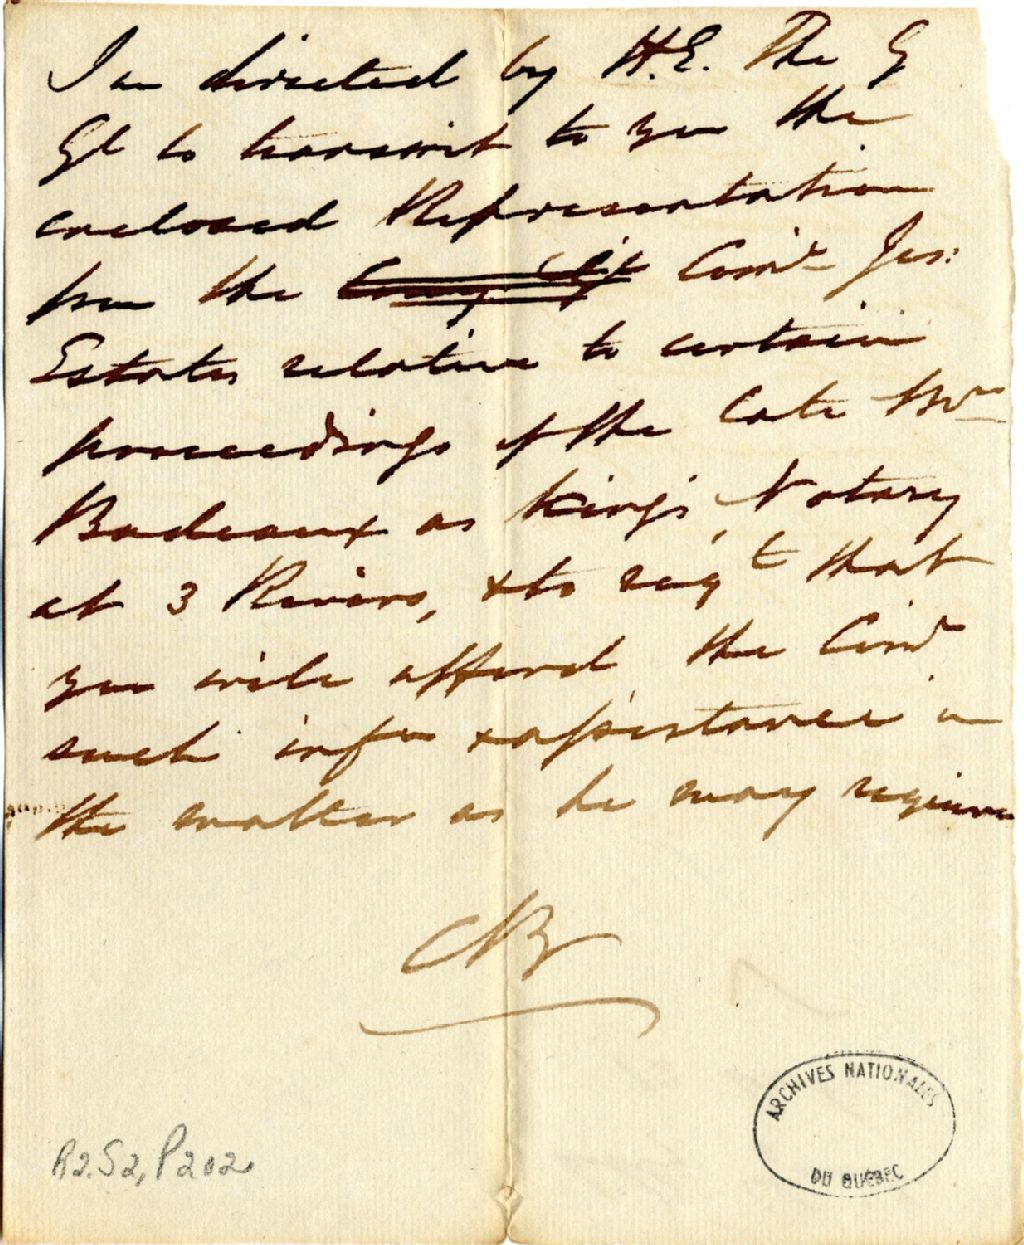 I am directed by H.E. The G
Gl to transmit to you the
enclosed Representation
from the Comr Jes:
Estates relative to certain
proceedings of the late Mr
Badeaux as King's Notary
at 3 Rivers, & to reqt that
you will afford the Comr
such infon & assistance in
the matter as he may require
ARCHIVES NATIONALES
DU QUÉBEC
R2.S2, P202